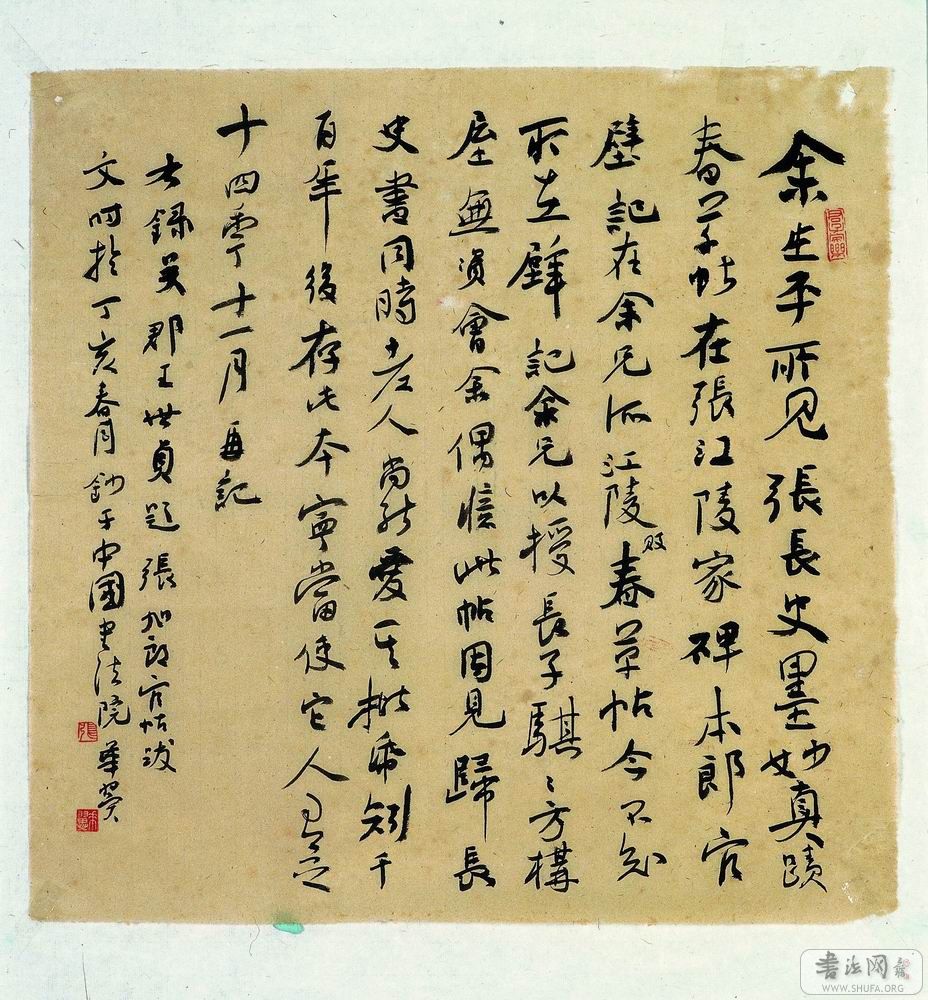 余生平所见張長史墨妙真蹟
春草帖在張江陵家碑本郎官
壁記在余兄所江陵敗春草帖今不知
所在壁記余兄以授長子騏〻方構
屋無資會余偶臨此帖因見歸長
史書同時老人尚能愛其批乖矧千
百年後存此本寧當使它人有之
十四年十一月再記
右録吴郡王世貞題張旭郎官帖跋
文時於丁亥春月鈔于中國書法院華
書法网
WWW.SHUFA.ORG